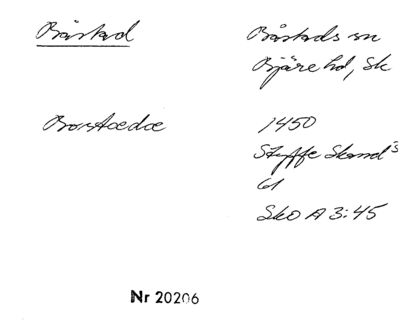 Båstad
Båstads sn
Bjäre hd, Sk
Bostædæ
1450
Styffe Skand³
61
SkO A 3:45
Nr 20206